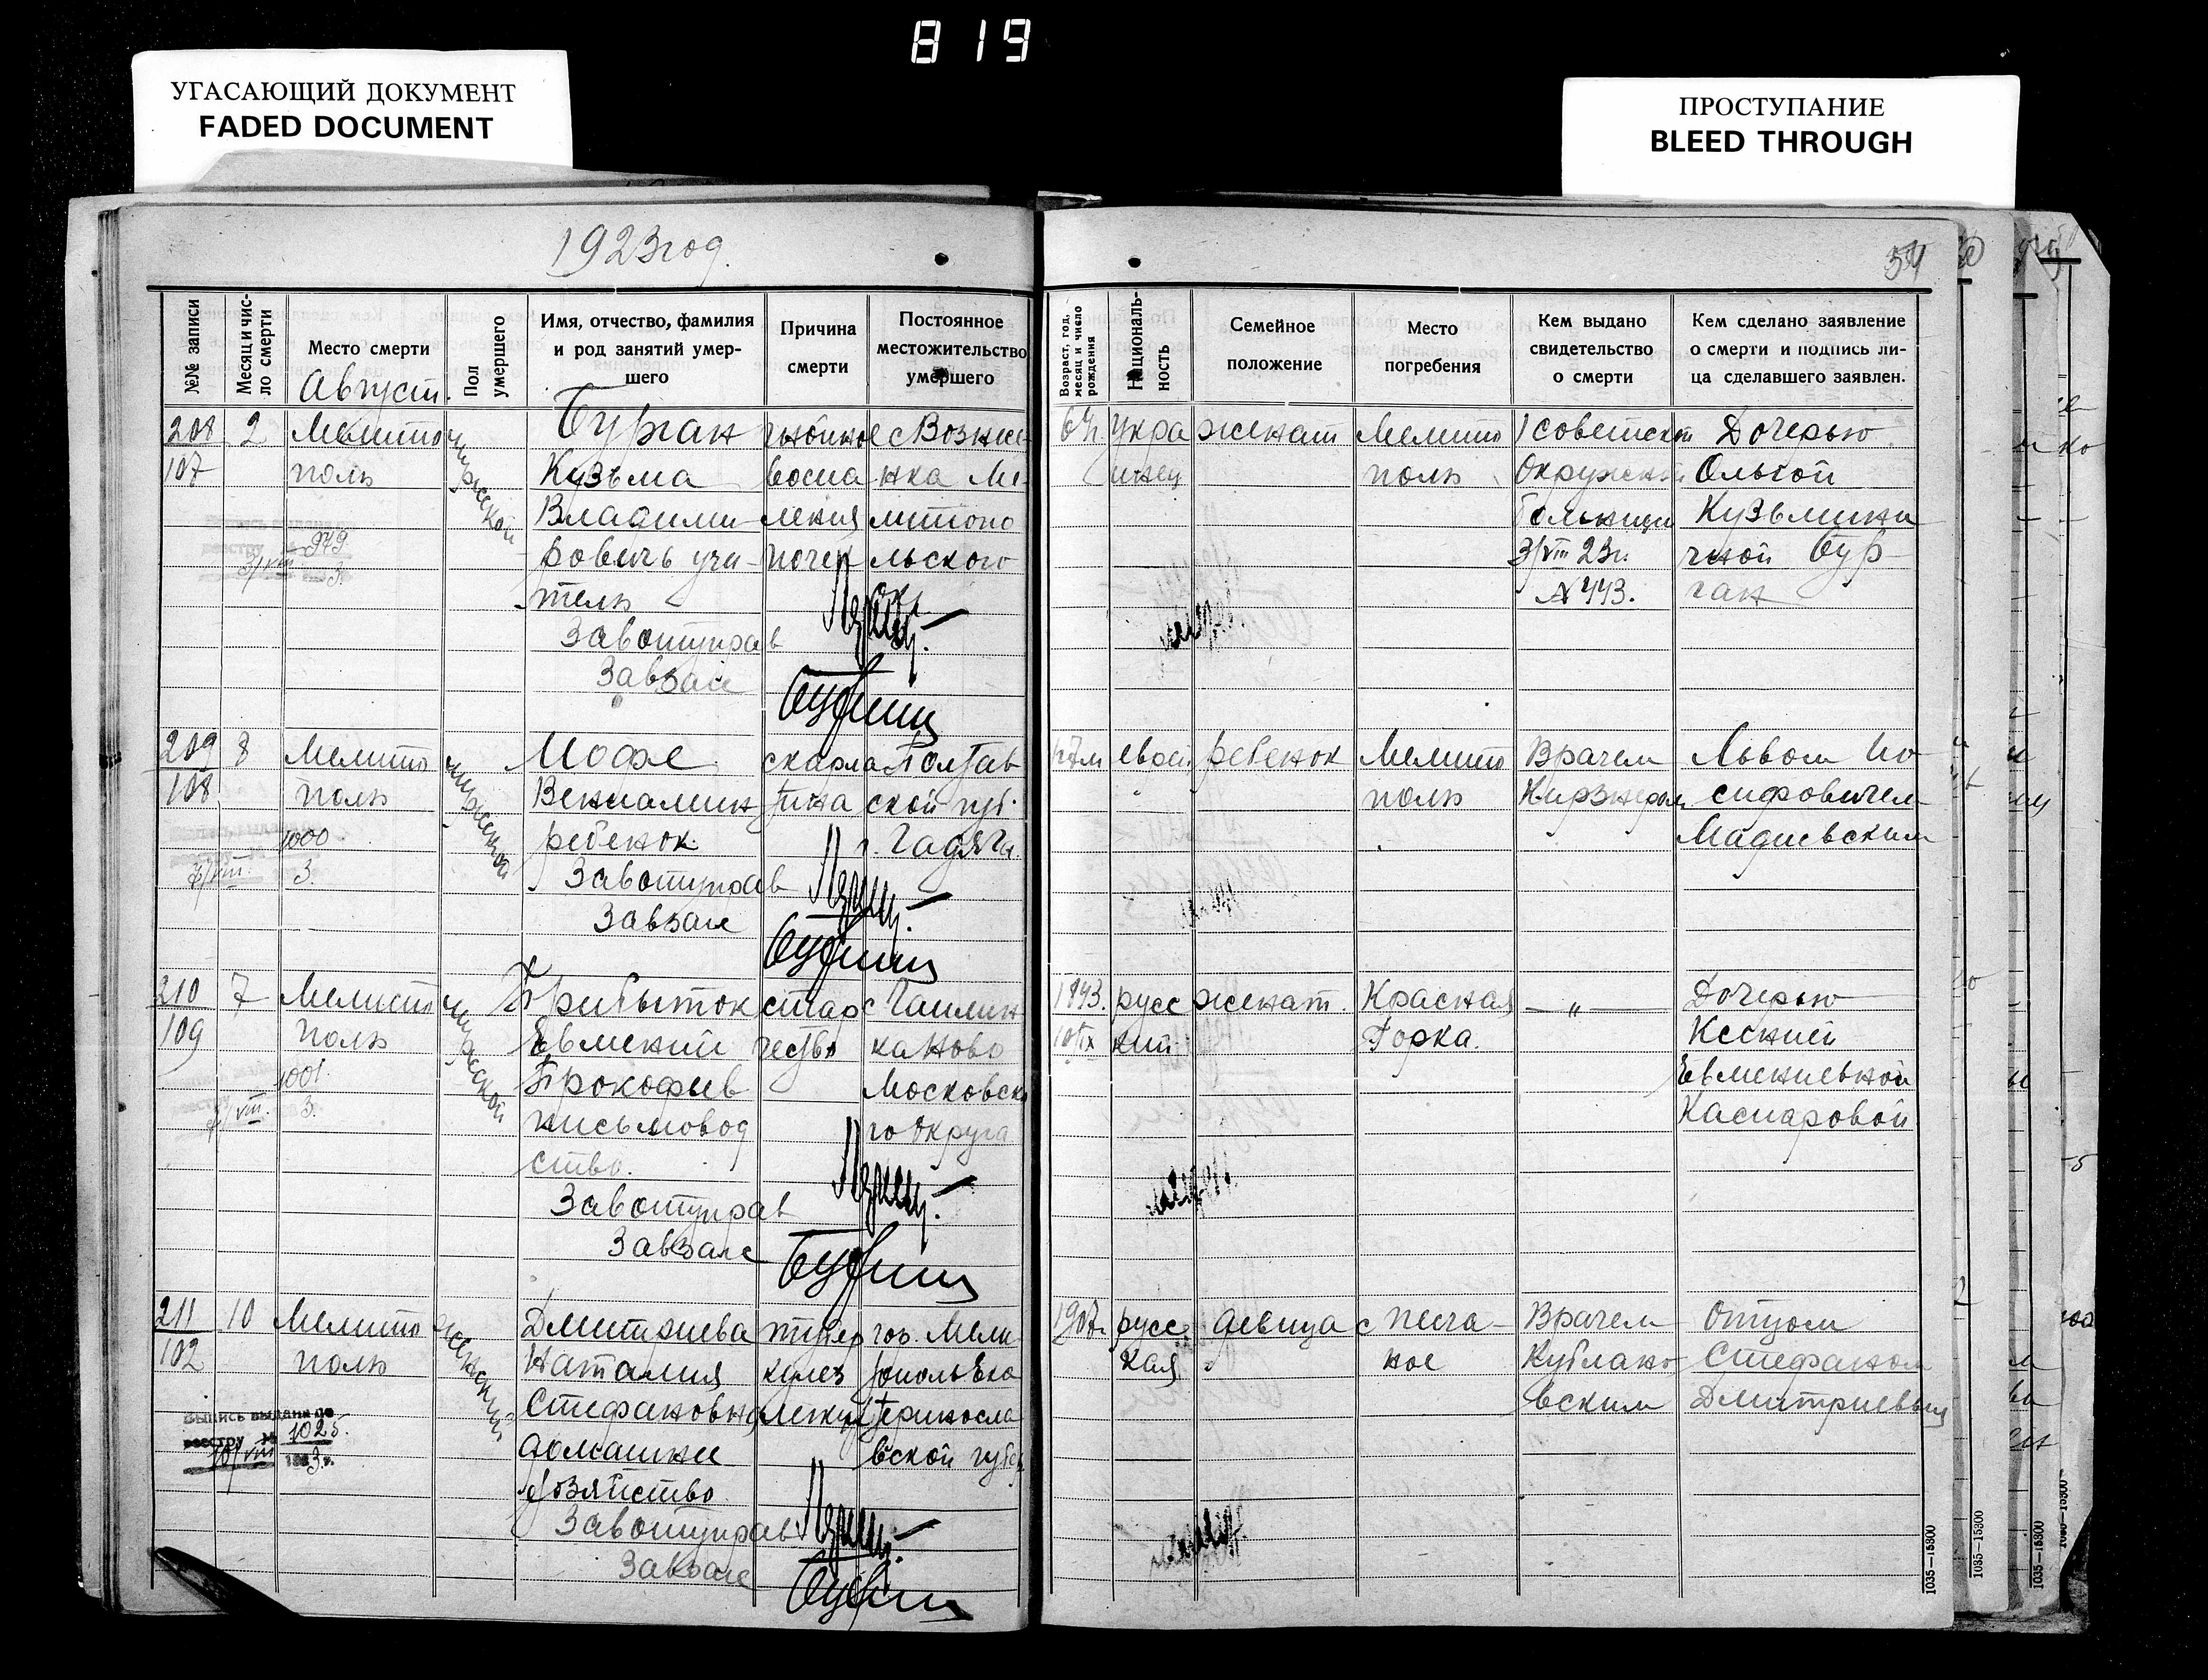 819
УГАСАЮЩИЙ ДОКУМЕНТ
FADED DOCUMENT
ПРОСТУПАНИЕ
BLEED THROUGH
1923 год.
54
№№ записи
Месяц и чис-
ло смерти
Место смерти
Август.
Пол
умершего
Имя, отчество, фамилия
и род занятий умер-
шего
Причина
смерти
Постоянное
местожительство
умершего
Возраст, год,
месяц и число
рождения
Националь-
ность
Семейное
положение
Место
погребения
Кем выдано
свидетельство
о смерти
Кем сделано заявление
о смерти и подпись ли-
ца сделавшего заявлен.
208
107
2
Мелито
поль
мужской
979
3/VIII 3.
Бурган
Кузьма
Владими-
ровичь учи-
тель
Завотуправ
Завзагс
гнойное
воспа
ления
почек
с Вознесе-
нка Ме-
литопо
льского
окр.
Укра
инец
женат
Мелито
поль
1 советской
Окружной
Больницы
3/VIII 23г.
N 443.
Дочерью
Ольгой
Кузьмини
чной Бур-
ган
209
108
8
Мелито
поль
мужской
1000.
8/VIII. 3.
Иофе
Вениамин
ребенок
Завотуправ
Завзагс
скарла
тина
Полтав
ской губ.
г. Гадяча.
еврей
ребенок
Мелито
поль
Врачем
Кирзнером
Львом Ио
сифовичем
Мадиевским
210
109
7
Мелито
поль
мужской
1001.
8/VIII. 3.
Прибыток
Евмений
Прокофьев
письмовод
ство.
Завотуправ
Завзагс
стар
чество
с
ка Ново
Московско
го округа
1843.
10/IX
русс
кий
женат.
Красная
Горка.
— „ —
Дочерью
Ксенией
Евмениевной
Каспаровой
211
102
10
Мелито
поль
женский
Выпись выдана по
реестру № 1025.
10/VIII 1923 г.
Дмитриева
Наталия
Стефановна
домашнее
хозяйство
Завотуправ
Завзагс
тубер
кулез
легких
гор. Мели
тополь Ека
теринослa
вской губер
1907г.
русс
кая
девица
с Песча-
ное
Врачем
Кублано
вским
Отцом
Стефаном
Дмитриевым
1035—15300
1035—15300
1035—15300
1035—15300